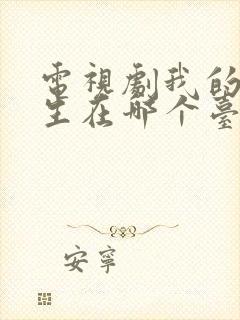 電視劇我的
生在哪个臺
安寧